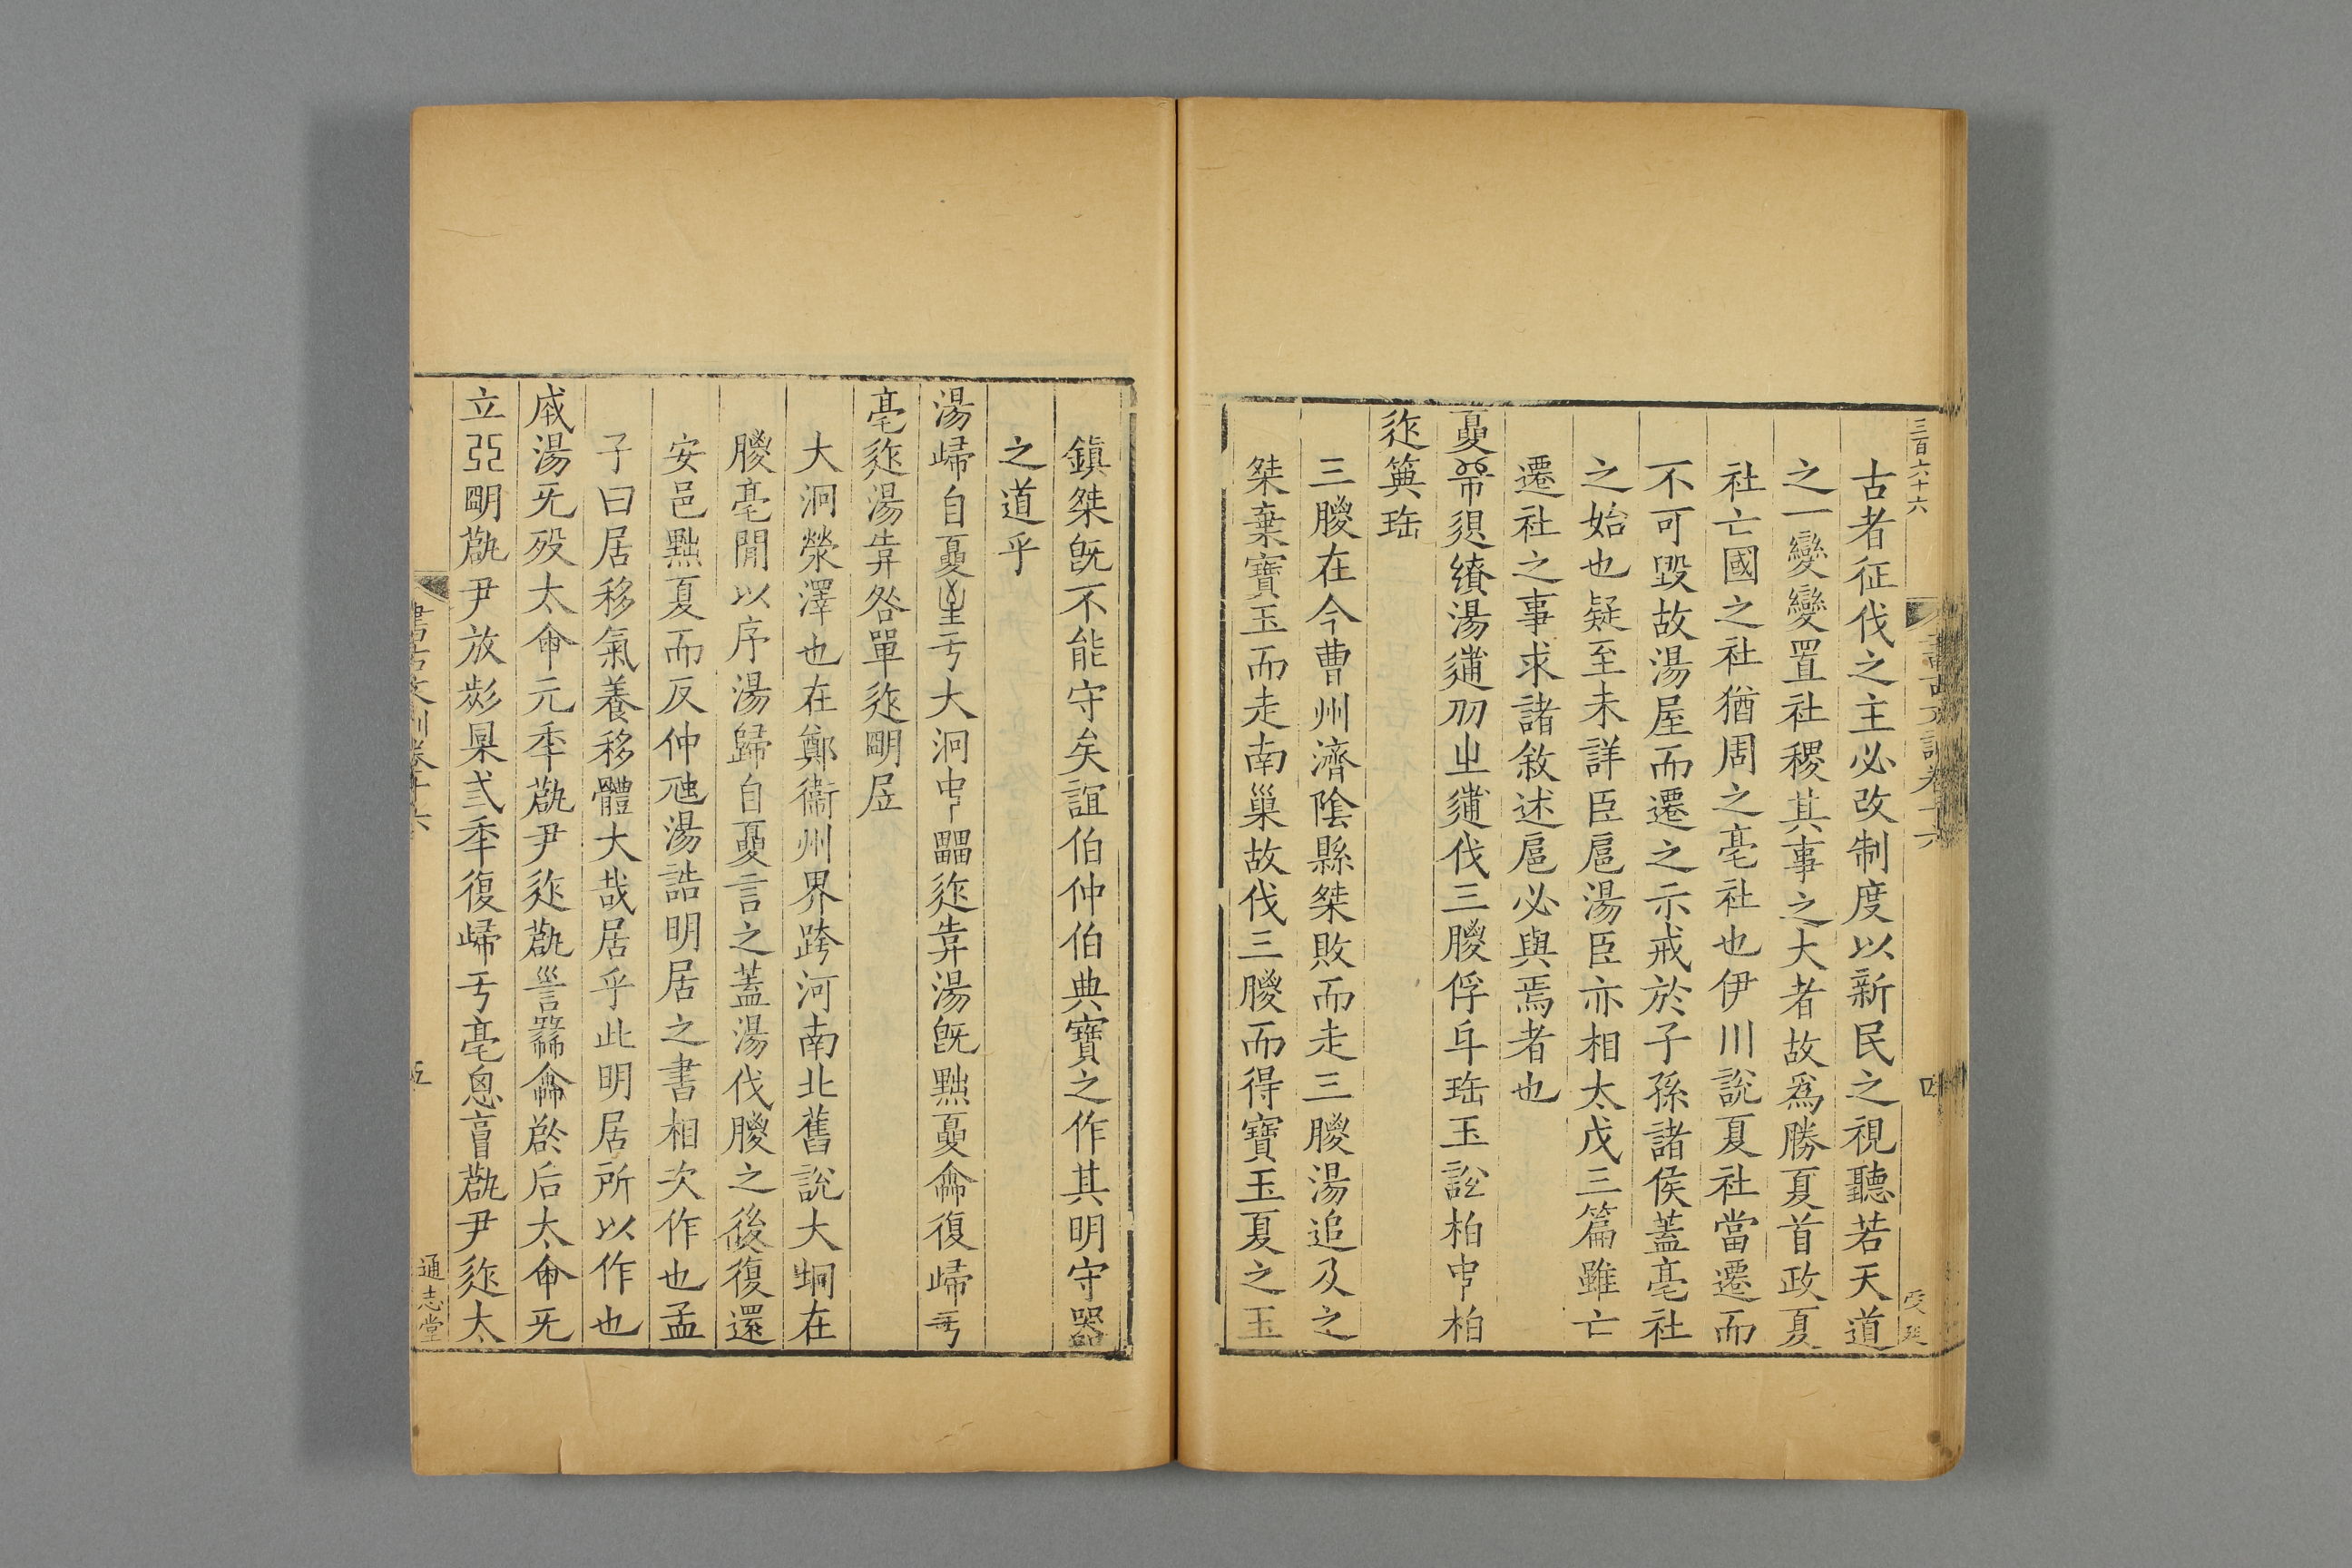 三百六十六
書古文訓卷十六
四
古者征伐之主必改制度以新民之視聽若天道
之一變變置社稷其事之大者故爲勝夏首政夏
社亡國之社猶周之亳社也伊川說夏社當遷而
不可毀故湯屋而遷之示戒於子孫諸侯蓋亳社
之始也疑至未詳臣扈湯臣亦相太戊三篇雖亡
遷社之事求諸敘述扈必與焉者也
夓 湯 伐三朡俘 玉 柏 柏
三朡在今曹州濟陰縣桀敗而走三朡湯追及之
桀棄寶玉而走南巢故伐三朡而得寶玉夏之玉
鎮桀旣不能守矣誼伯仲伯典寶之作其明守器
之道乎
湯歸自夓 亏大泂 湯旣黜夓 復歸亏
亳 湯 咎單 朙
大泂滎澤也在鄭衞州界跨河南北舊說大坰在
朡亳閒以序湯歸自夓言之蓋湯伐朡之後復還
安邑黜夏而反仲虺湯誥明居之書相次作也孟
子曰居移氣養移體大哉居乎此明居所以作也
湯旡 太命元秊 尹 后太命旡
立 朙 尹放 弎秊復歸亏亳 尹 太
書古文訓卷十六
五
通志堂